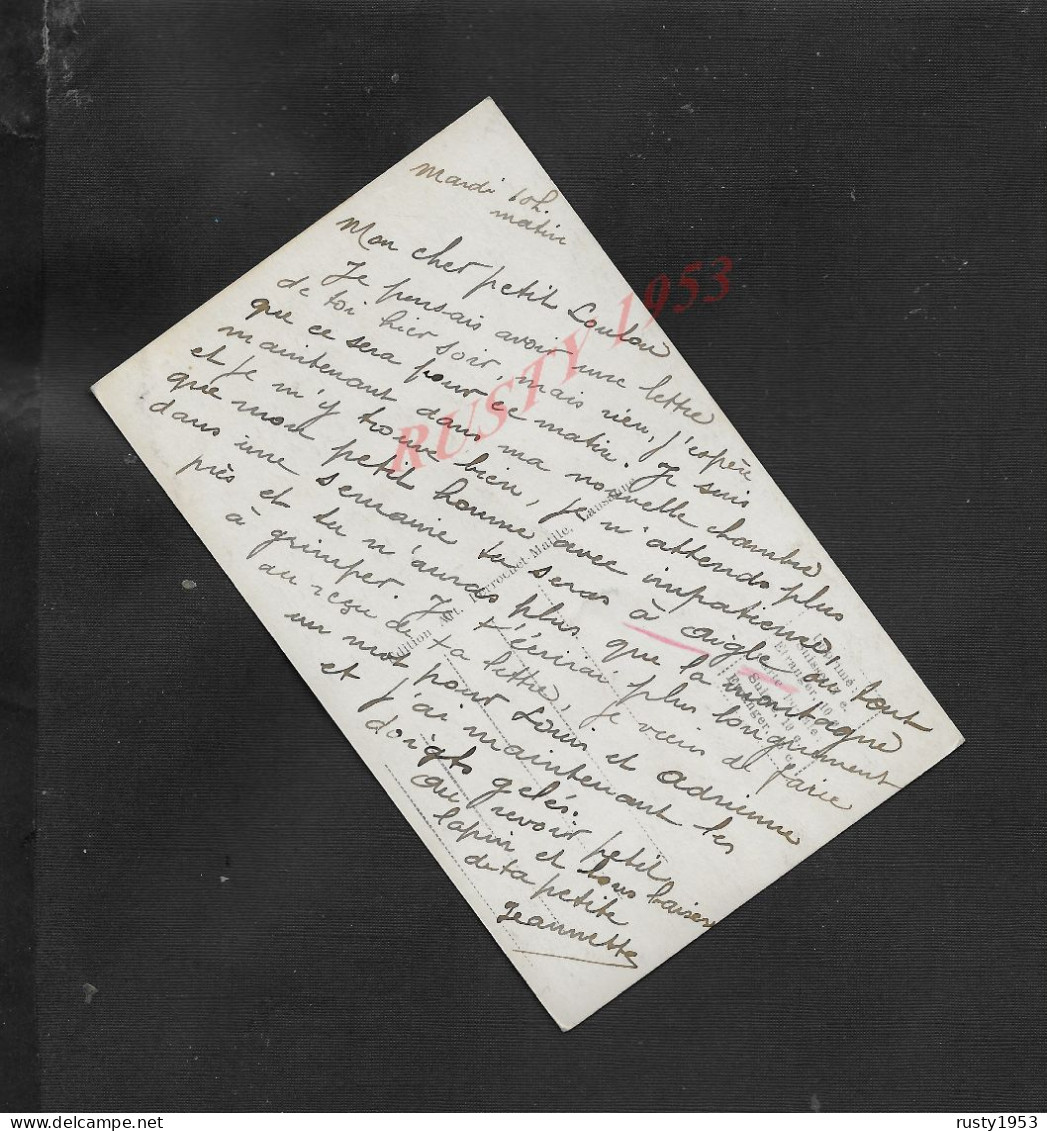 Mardi 10h.
matin
Mon cher petit Loulou
Je pensais avoir une lettre
de toi hier soir, mais rien, j'espère
que ce sera pour ce matin. Je suis
maintenant dans ma nouvelle chambre
et je m'y trouve bien, je n'attends plus
que mon petit homme avec impatience,
dans une semaine tu seras à Aigle ou tout
près et tu n'auras plus que la montagne
à grimper. Je t'écrirai plus longuement
au reçu de ta lettre, je viens de faire
un mot pour Louis et Adrienne
et j'ai maintenant les
doigts gelés.
Au revoir petit
lapin et bons baisers
de ta petite
Jeannette
Edition Art. Perrochet-Matile, Lausanne
Imprimé
Suisse,
Etranger, 10
Suisse, 10
Etranger.
RUSTY 1953
rusty1953